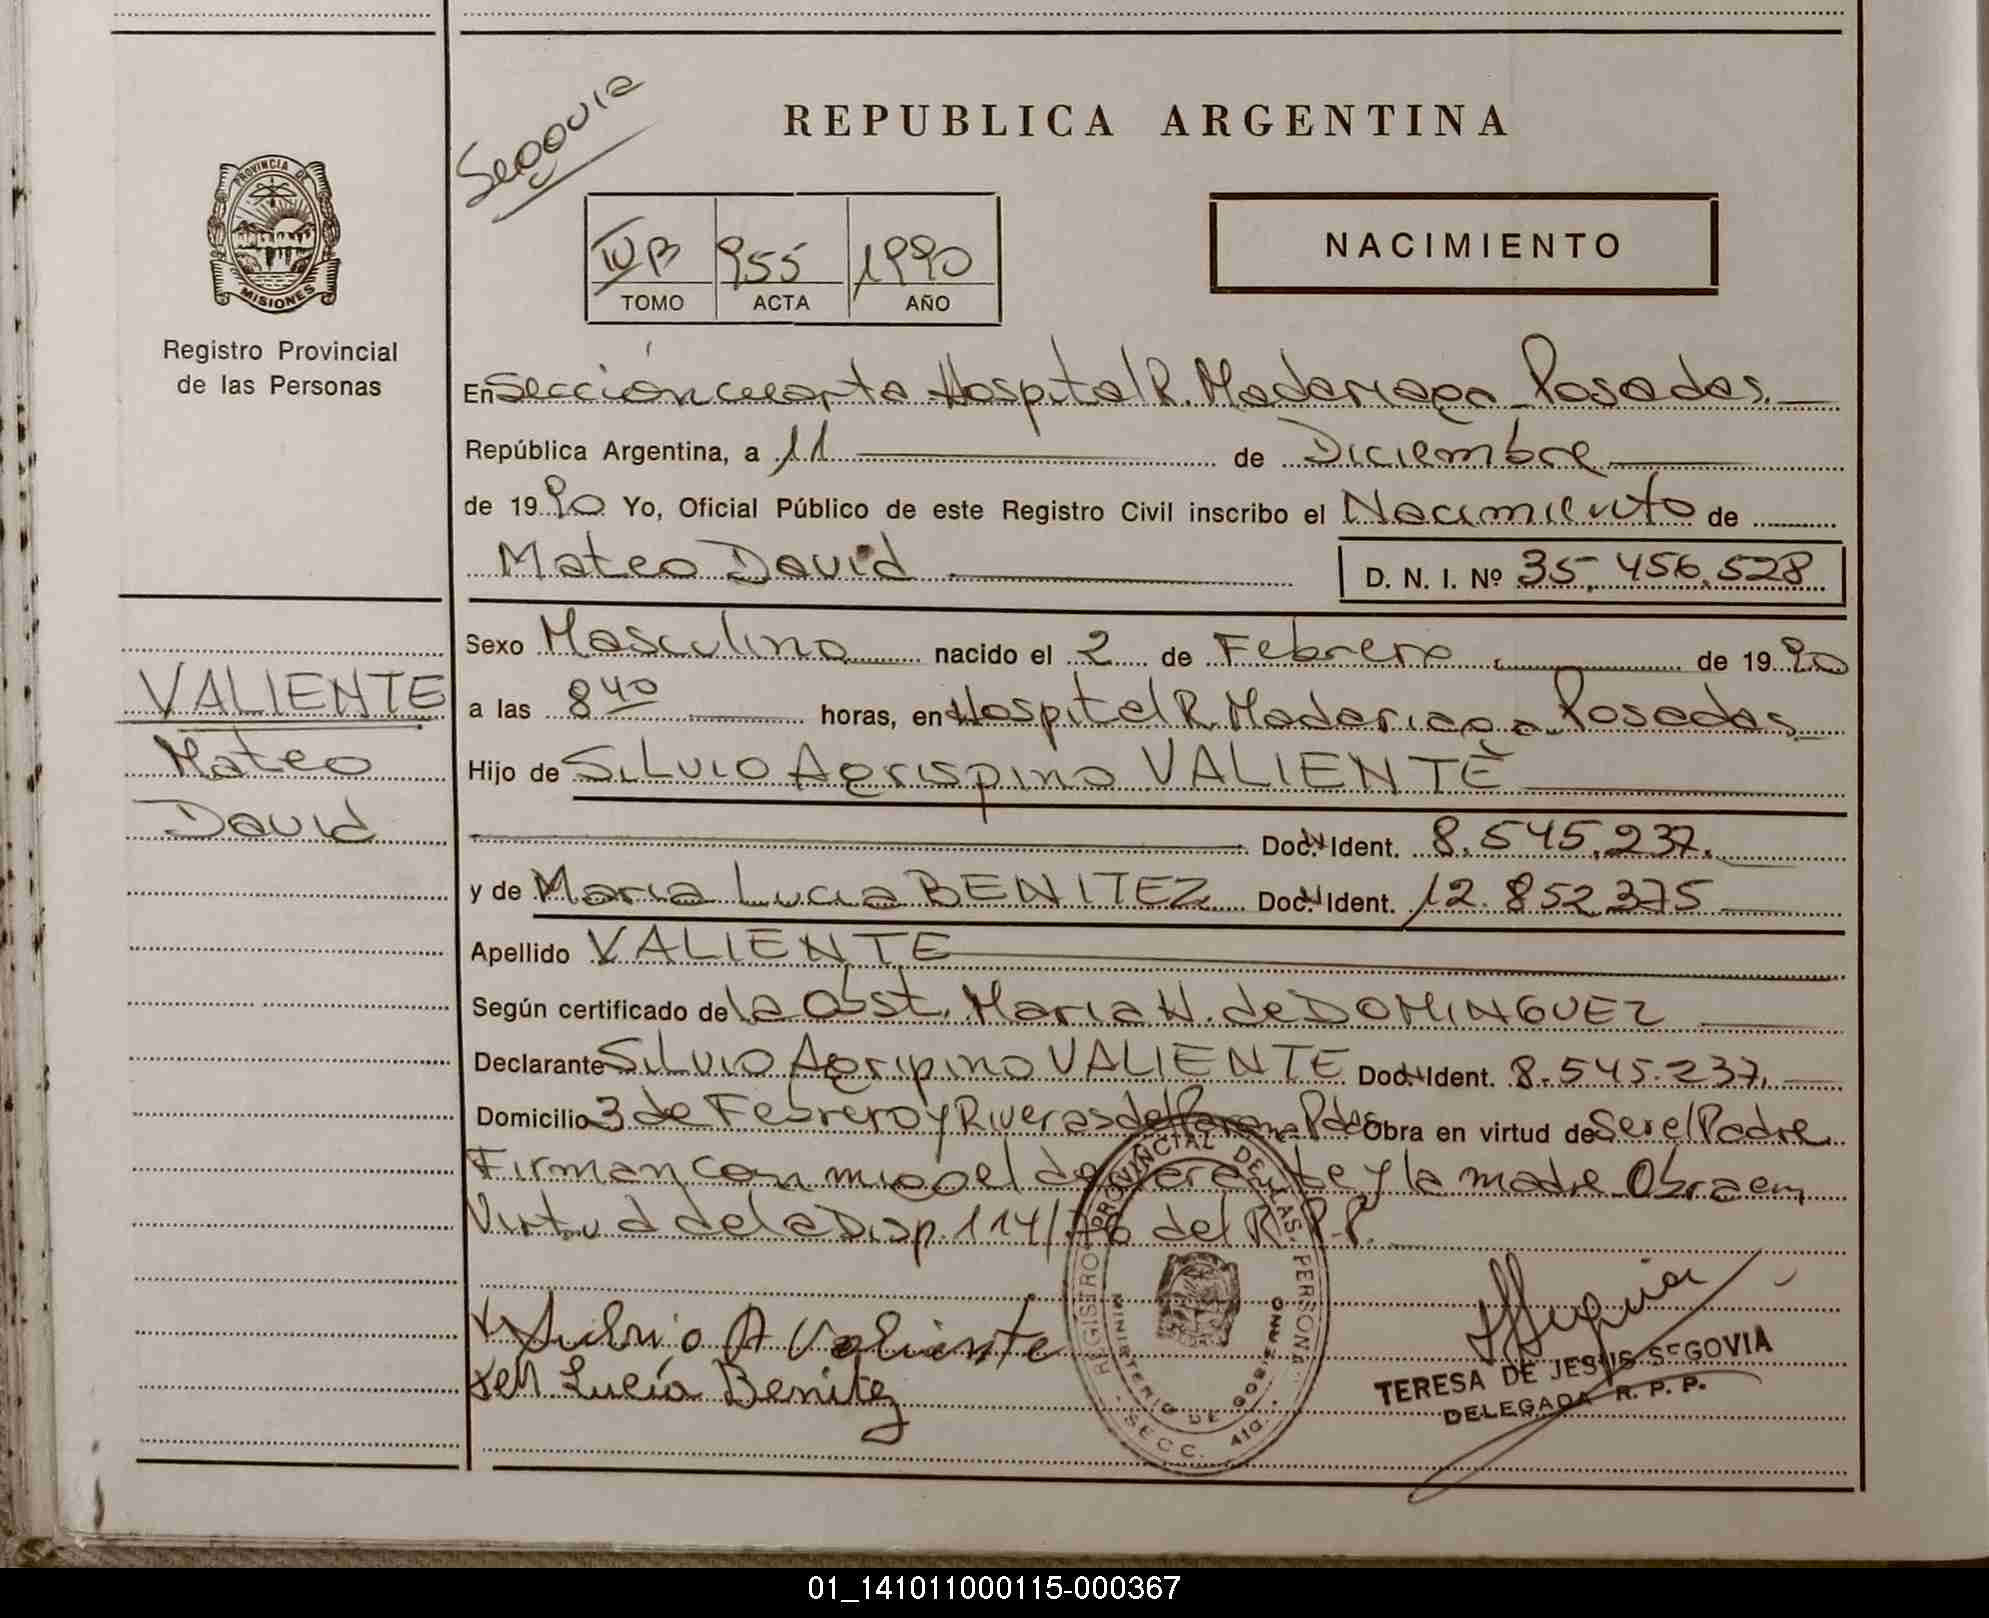 Segovia
REPUBLICA ARGENTINA
PROVINCIA DE
MISIONES
Registro Provincial
de las Personas
IV B 955 1990
TOMO ACTA AÑO
NACIMIENTO
En Sección cuarta Hospital R. Madariaga Posadas.
República Argentina, a 11 de Diciembre
de 1990 Yo, Oficial Público de este Registro Civil inscribo el Nacimiento de
Mateo David D. N. I. Nº 35.456.528
Sexo Masculino nacido el 2 de Febrero de 1990
a las 8 40 horas, en Hospital R. Madariaga Posadas
Hijo de Silvio Agrispino VALIENTE
Doc. Ident. 8.545.237.
y de Maria Lucia BENITEZ Doc. Ident. 12.852.375
Apellido VALIENTE
Según certificado de la Obst. Maria N. de DOMINGUEZ
Declarante Silvio Agripino VALIENTE Doc. Ident. 8.545.237.
Domicilio 3 de Febrero y Riveras del Parana Pdas Obra en virtud de Ser el Padre
Firman conmigo el declarante y la madre Obra en
Virtud de la Disp. 114/76 del R.P.P.
VALIENTE
Mateo
David
Silvio A Valiente
M Lucía Benitez
REGISTRO PROVINCIAL DE LAS PERSONAS
MINISTERIO DE GOBIERNO
SECC. 4ta.
TERESA DE JESUS SEGOVIA
DELEGADA R. P. P.
01_141011000115-000367